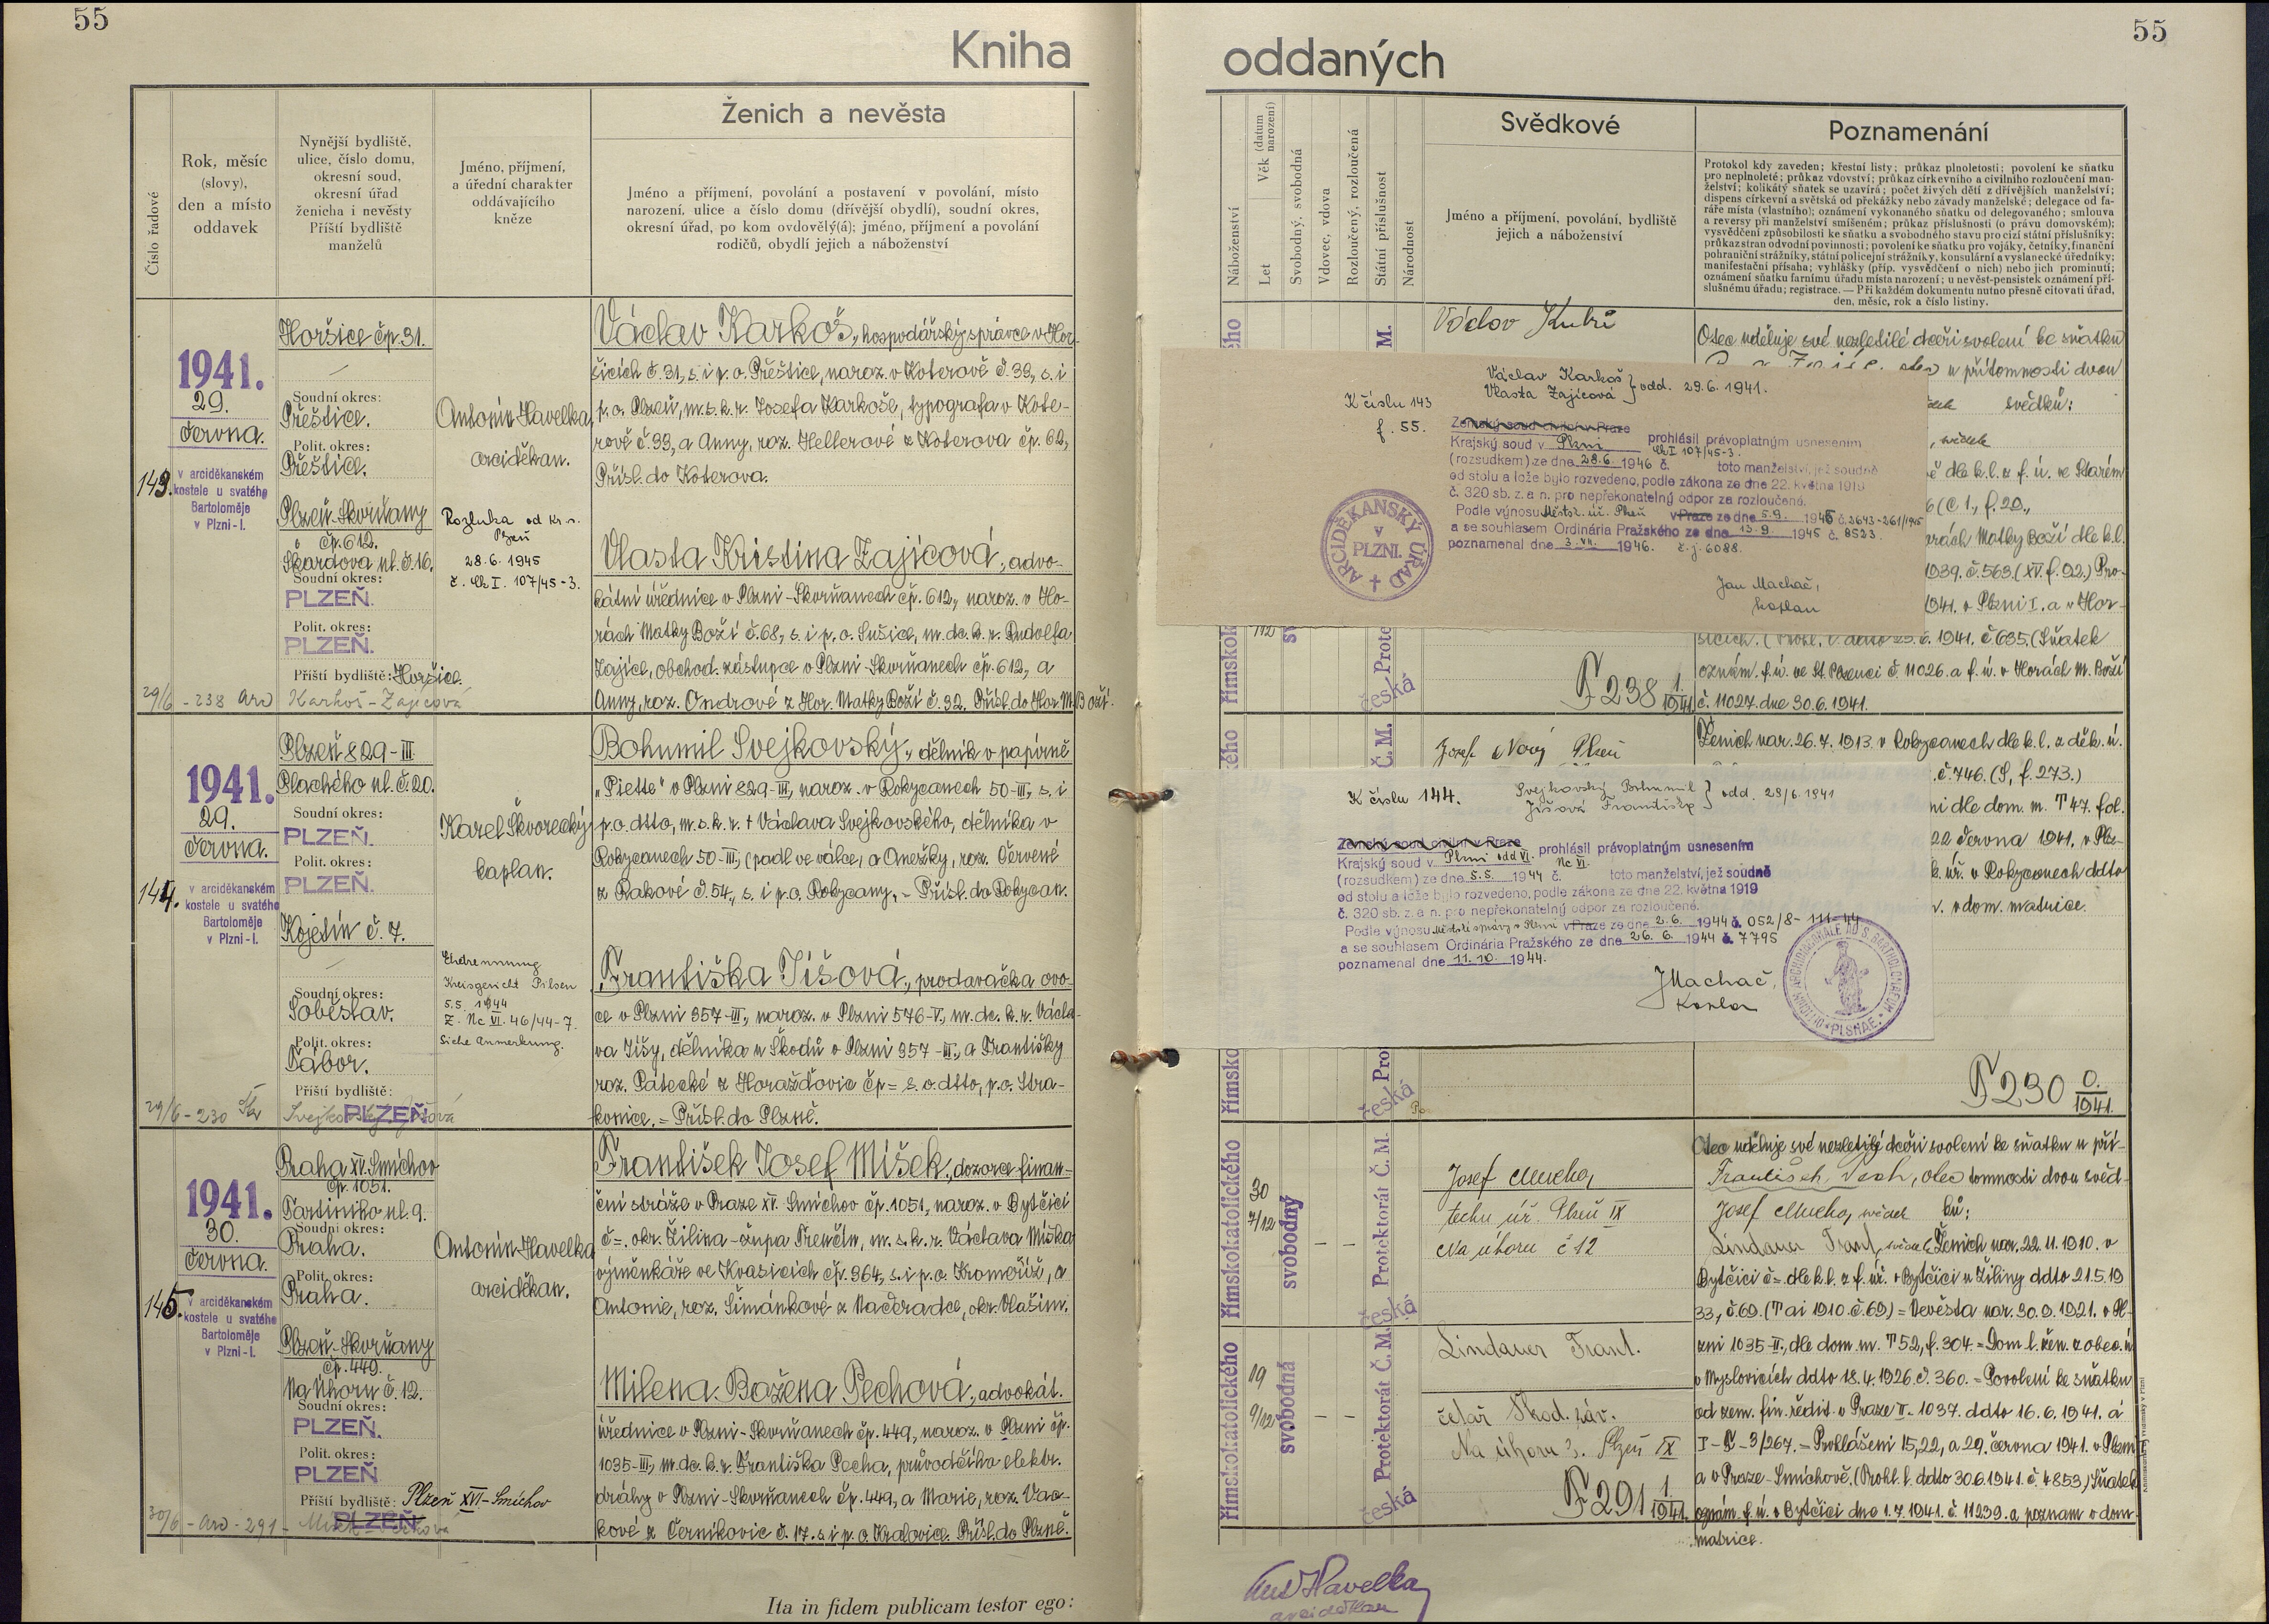 55
55
Kniha
oddaných
Číslo řadové
Rok, měsíc
(slovy),
den a místo
oddavek
Nynější bydliště,
ulice, číslo domu,
okresní soud,
okresní úřad
ženicha i nevěsty
Příští bydliště
manželů
Jméno, příjmení,
a úřední charakter
oddávajícího
kněze
Ženich a nevěsta
Jméno a příjmení, povolání a postavení v povolání, místo
narození, ulice a číslo domu (dřívější obydlí), soudní okres,
okresní úřad, po kom ovdovělý(á); jméno, příjmení a povolání
rodičů, obydlí jejich a náboženství
143.
1941.
29.
června.
v arciděkanském
kostele u svatého
Bartoloměje
v Plzni-I.
Horšice čp. 31.
Soudní okres:
Přeštice.
Polit. okres:
Přeštice.
Plzeň-Skvrňany
čp. 612.
Skardova ul. č. 16.
Soudní okres:
PLZEŇ.
Polit. okres:
PLZEŇ.
Příští bydliště: Horšice.
29/6 - 238 Ard Karkoš - Zajícová
Antonín Havelka,
arciděkan.
Rozluka od Kr. s.
Plzeň
28. 6. 1945
č. Ck I. 107/45-3.
Václav Karkoš, hospodářský správce v Hor-
šicích č. 31, s. i p. o. Přeštice, naroz. v Koterově č. 33, s. i
p. o. Plzeň, m. s. k. r. Josefa Karkoše, typografa v Kote-
rově č. 33, a Anny, roz. Hellerové z Koterova čp. 62,
Přísl. do Koterova.
Vlasta Kristina Zajícová, advo-
kátní úřednice v Plzni-Skvrňanech čp. 612, naroz. v Ho-
rách Matky Boží č. 68, s. i p. o. Sušice, m. dc. k. r. Rudolfa
Zajíce, obchod. zástupce v Plzni-Skvrňanech čp. 612, a
Anny, roz. Ondrové z Hor. Matky Boží č. 32. Přísl. do Hor. M. Boží.
144.
1941.
29.
června.
v arciděkanském
kostele u svatého
Bartoloměje
v Plzni-I.
Plzeň 829-III
Plachého ul. č. 20.
Soudní okres:
PLZEŇ.
Polit. okres:
PLZEŇ.
Kojetín č. 7.
Soudní okres:
Soběslav.
Polit. okres:
Tábor.
Příští bydliště:
PLZEŇ
29/6 - 230
Karel Škvorecký,
kaplan.
Ehetrennung
Kreisgericht Pilsen
5.5. 1944
Z. Nc VI. 46/44-7.
Siehe Anmerkung.
Bohumil Svejkovský, dělník v papírně
„Piette“ v Plzni 829-III, naroz. v Rokycanech 50-III, s. i
p. o. dtto, m. s. k. r. † Václava Svejkovského, dělníka v
Rokycanech 50-III, (padl ve válce, a Anežky, roz. Červené
z Rakové č. 54, s. i p. o. Rokycany. - Přísl. do Rokycan.
Františka Jíšová, prodavačka ovo-
ce v Plzni 357-III, naroz. v Plzni 576-V, m. dc. k. r. Václa-
va Jíšy, dělníka u Škodů v Plzni 357-III, a Františky
roz. Pátecké z Horažďovic čp = s. o. dtto, p. o. Stra-
konice. = Přísl. do Plzně.
145.
1941.
30.
června.
v arciděkanském
kostele u svatého
Bartoloměje
v Plzni-I.
Praha XV. Smíchov
čp. 1051.
Soudní okres:
Praha.
Polit. okres:
Praha.
Plzeň-Skvrňany
čp. 449.
Na Úhoru č. 12.
Soudní okres:
PLZEŇ.
Polit. okres:
PLZEŇ
Příští bydliště: Plzeň XVI-Smíchov
PLZEŇ
30/6 - Ard - 291 -
Antonín Havelka
arciděkan.
František Josef Míšek, dozorce finan-
ční stráže v Praze XV. Smíchov čp. 1051, naroz. v Bytčici
č =. okr. Žilina - župa Trenčín, m. s. k. r. Václava Míška
výměnkáře ve Kvasicích čp. 364, s. i p. o. Kroměříž, a
Antonie, roz. Šimánkové z Načeradce, okr. Vlašim.
Milena Božena Pechová, advokát.
úřednice v Plzni-Skvrňanech čp. 449, naroz. v Plzni čp.
1035-III, m. dc. k. r. Františka Pecha, průvodčího elektr.
dráhy v Plzni-Skvrňanech čp. 449, a Marie, roz. Vac-
kové z Černíkovic č. 17. s. i p. o. Kralovice. Přísl. do Plzně.
Ita in fidem publicam testor ego:
Náboženství
Let
Věk (datum narození)
Svobodný, svobodná
Vdovec, vdova
Rozloučený, rozloučená
Státní příslušnost
Národnost
Svědkové
Jméno a příjmení, povolání, bydliště
jejich a náboženství
Poznamenání
Protokol kdy zaveden; křestní listy; průkaz plnoletosti; povolení ke sňatku
pro neplnoleté; průkaz vdovství; průkaz církevního a civilního rozloučení man-
želství; kolikátý sňatek se uzavírá; počet živých dětí z dřívějších manželství;
dispens církevní a světská od překážky nebo závady manželské; delegace od fa-
ráře místa (vlastního); oznámení vykonaného sňatku od delegovaného; smlouva
a reversy při manželství smíšeném; průkaz příslušnosti (o právu domovském);
vysvědčení způsobilosti ke sňatku a svobodného stavu pro cizí státní příslušníky;
průkaz stran odvodní povinnosti; povolení ke sňatku pro vojáky, četníky, finanční
pohraniční strážníky, státní policejní strážníky, konsulární a vyslanecké úředníky;
manifestační přísaha; vyhlášky (příp. vysvědčení o nich) nebo jich prominutí;
oznámení sňatku farnímu úřadu místa narození; u nevěst-pensistek oznámení pří-
slušnému úřadu; registrace. — Při každém dokumentu nutno přesně citovati úřad,
den, měsíc, rok a číslo listiny.
Václav
Otec uděluje své nezletilé dceři svolení ke sňatku
v přítomnosti dvou
svědků:
K číslu 143
f. 55.
Václav Karkoš
Vlasta Zajícová } odd. 29. 6. 1941.
Zemský soud civilní v Praze
Krajský soud v Plzni prohlásil právoplatným usnesením
Ck I 107/45-3.
(rozsudkem) ze dne 28.6. 1946 č. toto manželství, jež soudně
od stolu a lože bylo rozvedeno, podle zákona ze dne 22. května 1919
č. 320 sb. z. a n. pro nepřekonatelný odpor za rozloučené.
Podle výnosu Městsk. úř. Plzeň v Praze ze dne 5.9. 1945 č. 2643-261/1945
a se souhlasem Ordinária Pražského ze dne 13.9 1945 č. 8523.
poznamenal dne 3. VII. 1946. č. j. 6088.
Jan Machač,
kaplan
ARCIDĚKANSKÝ ÚŘAD
V
PLZNI.
dle k. l. z f. ú. ve Starém
(C 1., f. 20.,
orách Matky Boží dle k. l.
1939. č. 563. (XV. f. 92.) Pro-
1941. v Plzni I. a v Hor-
šicích. 6. 1941. č 635. (Sňatek
oznám. f. ú. ve St. Plzenci č. 11026. a f. ú. v Horách M. Boží
č. 11027. dne 30. 6. 1941.
F 238 1/1941.
česká
Josef Nový Plzeň
Ženich nar. 26. 7. 1913. v Rokycanech dle k. l. z děk. ú.
č. 746. (S, f. 273.)
ni dle dom. m. T 47. fol.
22 června 1941. v Plz-
k. úř. v Rokycanech ddto
v dom. matrice.
K číslu 144.
Svejkovský Bohumil
Jíšová Františka } odd. 29/6. 1941
Zemský soud civilní v Praze
Krajský soud v Plzni odd VI. prohlásil právoplatným usnesením
Nc VI.
(rozsudkem) ze dne 5.5. 1944 č. toto manželství, jež soudně
od stolu a lože bylo rozvedeno, podle zákona ze dne 22. května 1919
č. 320 sb. z. a n. pro nepřekonatelný odpor za rozloučené.
Podle výnosu Městské správy v Plzni v Praze ze dne 2.6. 1944 č. 052/8-111-44
a se souhlasem Ordinária Pražského ze dne 26. 6. 1944 č. 7795
poznamenal dne 11. 10. 1944.
J Machač,
Kaplan
F 230 0./1941.
česká
římskokatolického
30
7/12
svobodný
Protektorát Č. M.
česká
Josef Mucha,
techn. úř. Plzeň IX
Na úhoru č 12
římskokatolického
19
9/12
svobodná
Protektorát Č. M.
česká
Lindauer Frant.
četař Škod. záv.
Na úhoru 3. Plzeň IX
F 291 1/1941.
Otec uděluje své nezletilé dceři svolení ke sňatku u pří-
František Pech, otec tomnosti dvou svěd-
Josef Mucha, svědek ků:
Lindauer Frant, svědek Ženich nar. 22. 11. 1910. v
Bytčici č =. dle k. l. z f. úř. v Bytčici u Žiliny ddto 21. 5. 19
33, č 69. (T ai 1910. č. 69) = Nevěsta nar. 30. 9. 1921. v Pl-
zni 1035-II, dle dom. m. T 52, f. 304. = Dom. l. žen. z obec. ú
v Myslovicích ddto 18. 4. 1926. č. 360. = Povolení ke sňatku
od zem. fin. ředit. v Praze II - 1037. ddto 16. 6. 1941. á
Prohlášeni 15, 22, a 29. června 1941. v Plzni
a v Praze-Smíchově. (Prohl. l. ddto 30. 6. 1941. č. 4853.) Sňatek
oznám. f. ú. v Bytčici dne 1. 7. 1941. č. 11239. a poznam v dom.
matrice.
Ant Havelka
arciděkan